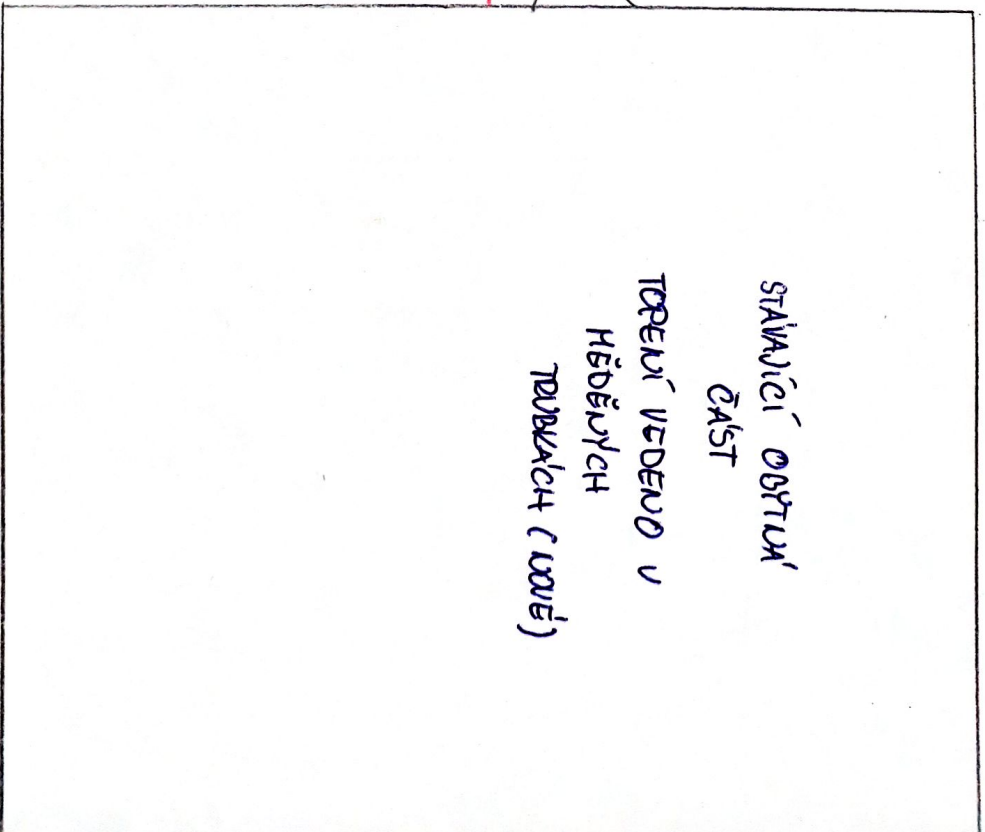 STÁVAJÍCÍ OBYTNÁ
ČÁST
TOPENÍ VEDENO V
MĚDĚNÝCH
TRUBKÁCH (NOVÉ)